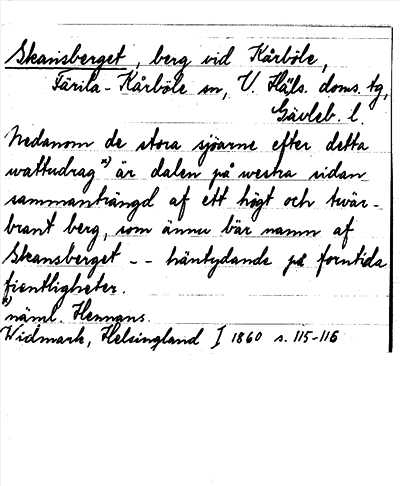 Skansberget, berg vid Kårböle,
Färila-Kårböle sn, V. Häls. doms. tg,
Gävleb. l.
Nedanom de stora sjöarne efter detta
wattudrag x) är dalen på westra sidan
sammanträngd af ett högt och twär-
brant berg, som ännu bär namn af
Skansberget -- häntydande på forntida
fientligheter.
x) näml. Hennans.
Widmark, Helsingland I 1860 s. 115-116